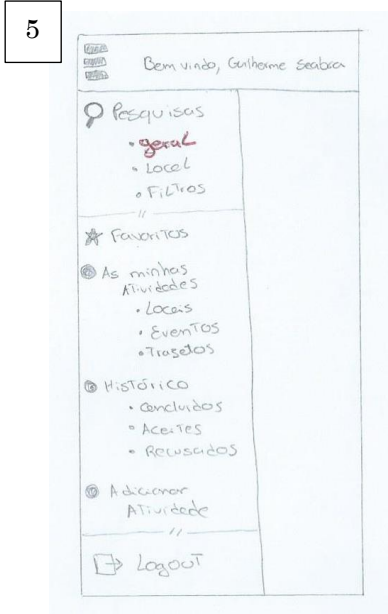 5
Bem vindo, Guilherme Seabra
Pesquisas
• geral
• Local
• Filtros
Favoritos
As minhas
Atividades
• Locais
• Eventos
• Trajetos
Histórico
• Concluidos
• Aceites
• Recusados
Adicionar
Atividade
Logout